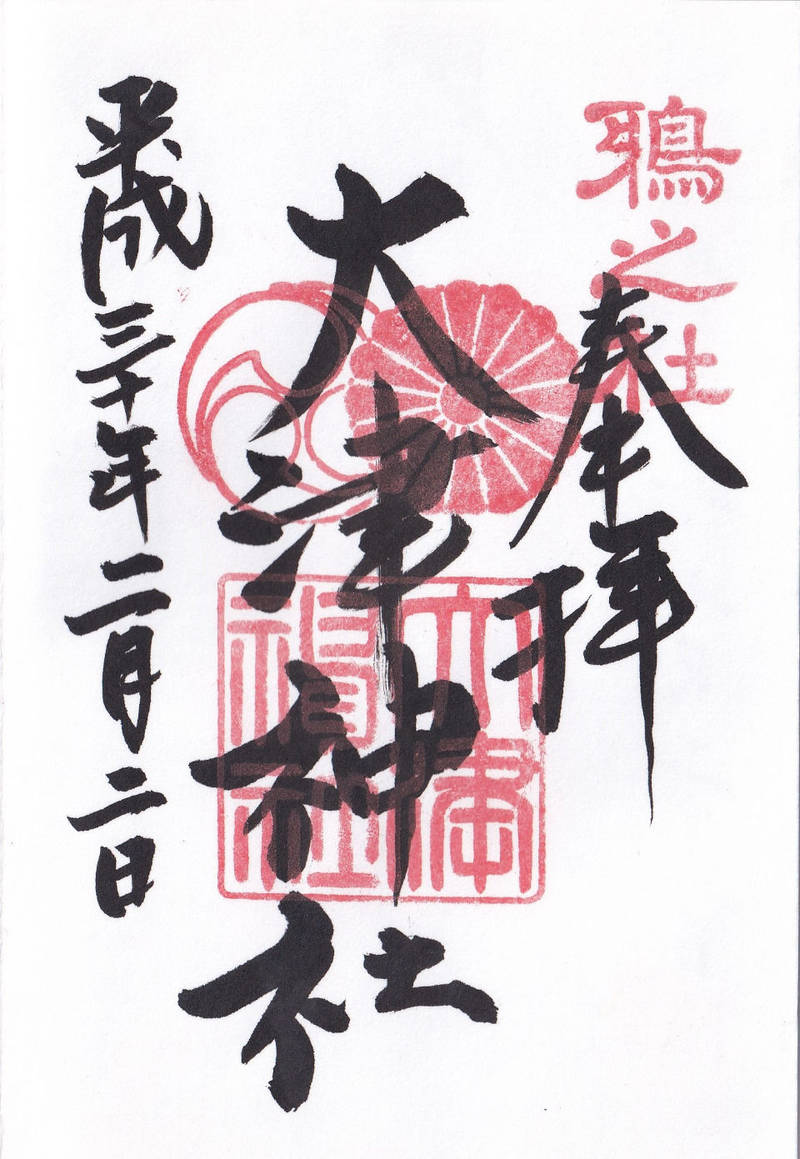 之社
奉拝
大津神社
大津
神社
平成三十年二月二日